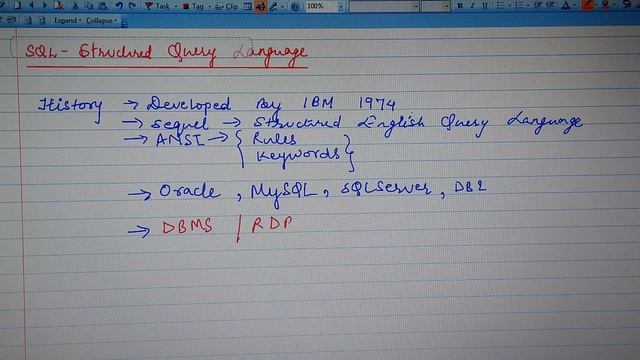 Task Tag Clip 100%
Expand Collapse
SQL - Structured Query Language
History → Developed By IBM 1974
→ Sequel → Structured English Query Language
→ ANSI → { Rules
Keywords }
→ Oracle, MySQL, SQLServer, DB2
→ DBMS | RDP